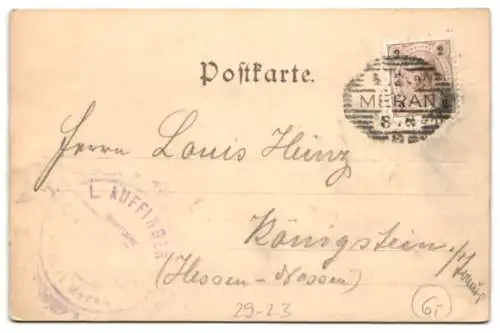 2 2
Postkarte.
MERAN
Herrn Louis Heinz
L. AUFFINGER
Meran
Königstein i/Taunus
(Hessen-Nassau)
29-23
6,-